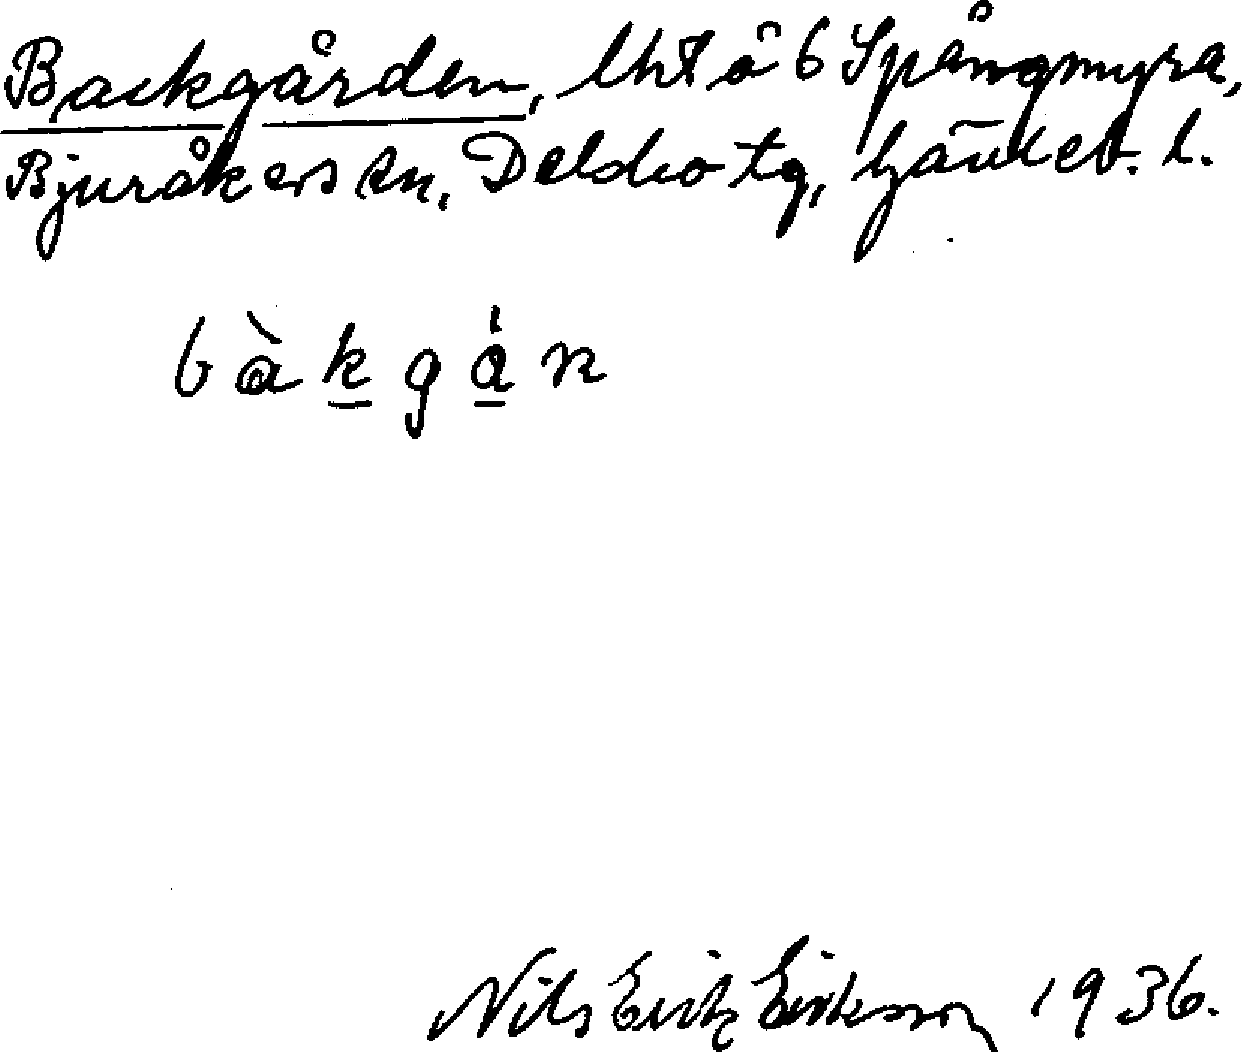 Backgården, lht å 6 Spångmyra,
Bjuråkers sn, Delsbo tg, Gävleb. l.
bàkgá̱n
Nils Erik Eriksson 1936.